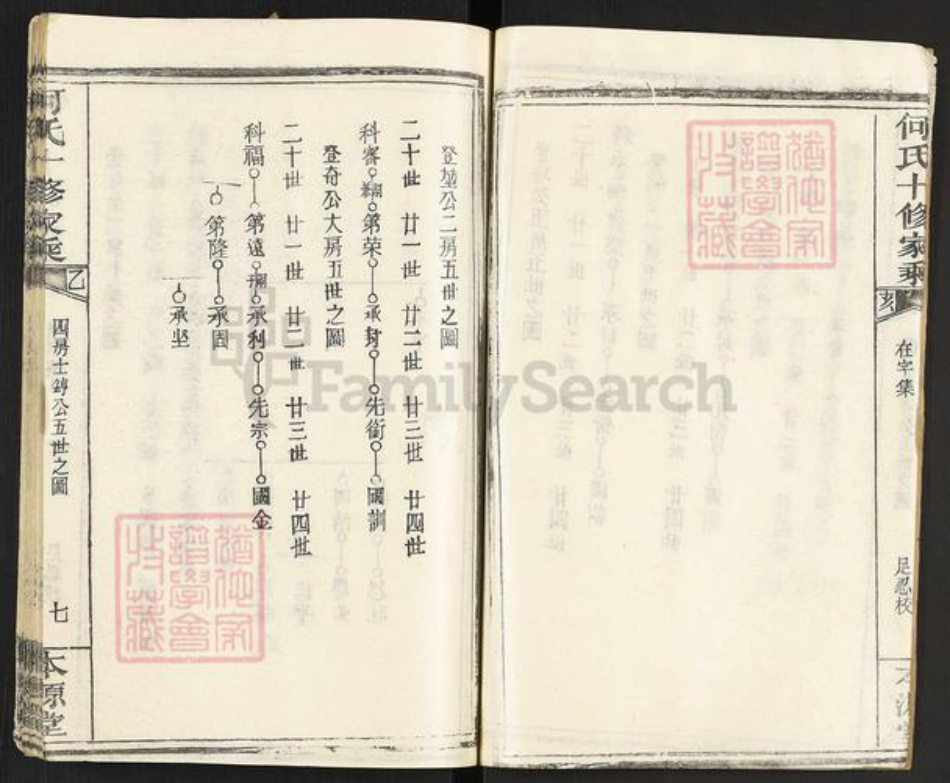 何氏十修家乘
在字集
足忍校
登堃公二房五世之圖
二十世 廿一世 廿二世 廿三世 廿四世
科睿 第荣 承封 先衛 國訓
登奇公大房五世之圖
二十世 廿一世 廿二世 廿三世 廿四世
科福 第遠 承利 先宗 國金
第隆 承固
承坚
四房士鏄公五世之圖
七
本源堂
猶他家譜學會收藏
猶他家譜學會收藏
FamilySearch